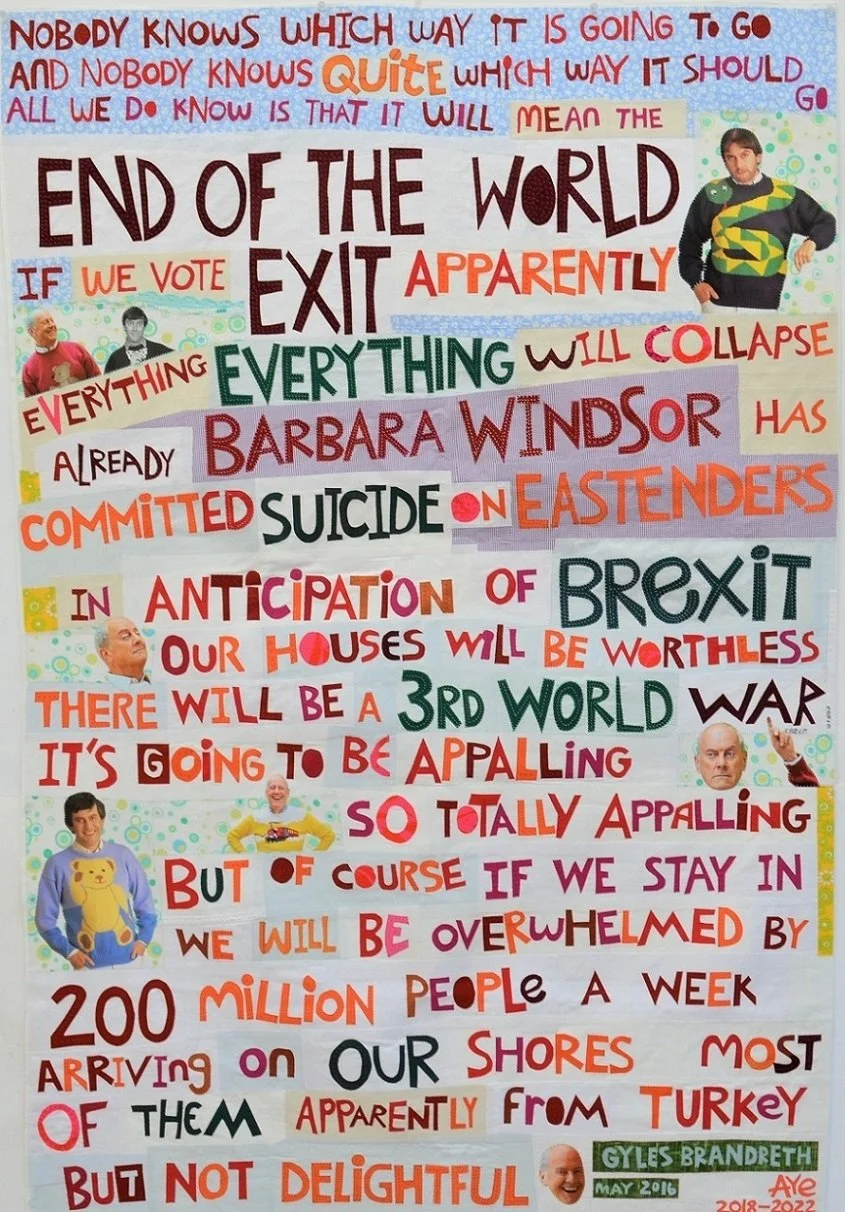 NOBODY KNOWS WHICH WAY iT IS GOING To GO
AnD NOBODY KNOWS QUiTE WHiCH WAY IT SHOULD GO
ALL WE Do KNOW IS THAT IT WILL MEAn THE
END OF THE WoRLD
IF WE VOTE EXIT APPARENTLY
EVERYTHING EVERYTHING WILL COLLAPSE
ALREADY BARBARA WINDSoR HAS
COMMiTTED SUICIDE ON EASTENDERS
IN ANTiCiPATION OF BReXiT
OUR HOUSES WILL BE WoRTHLESS
THERE WILL BE A 3RD WORLD WAR
IT'S GOiNG To BE APPALLiNG
SO ToTALLY APPALLiNG
BUT OF COURSE IF WE STAY IN
WE WILL BE OVERWHELMED BY
200 MiLLION PEOPLe A WEEK
ARRIVIng on OUR SHORES MOST
OF THEM APPARENTLY FRoM TURKeY
BUT NOT DELIGHTFUL
GYLES BRANDRETH
MAY 2016
AYe
2018-2022